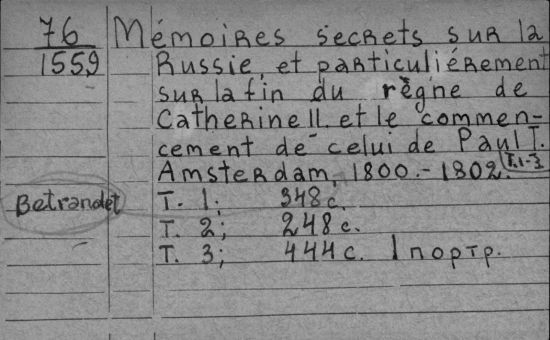 76
1559
Mémoires secrets sur la
Russie, et particuliérement
sur la fin du règne de
Catherine II. et le commen-
cement de celui de Paul I.
Amsterdam, 1800.-1802. T.1-3
Betrandet
T. 1; 348 с.
T. 2; 248 с.
T. 3; 444 с. 1 портр.